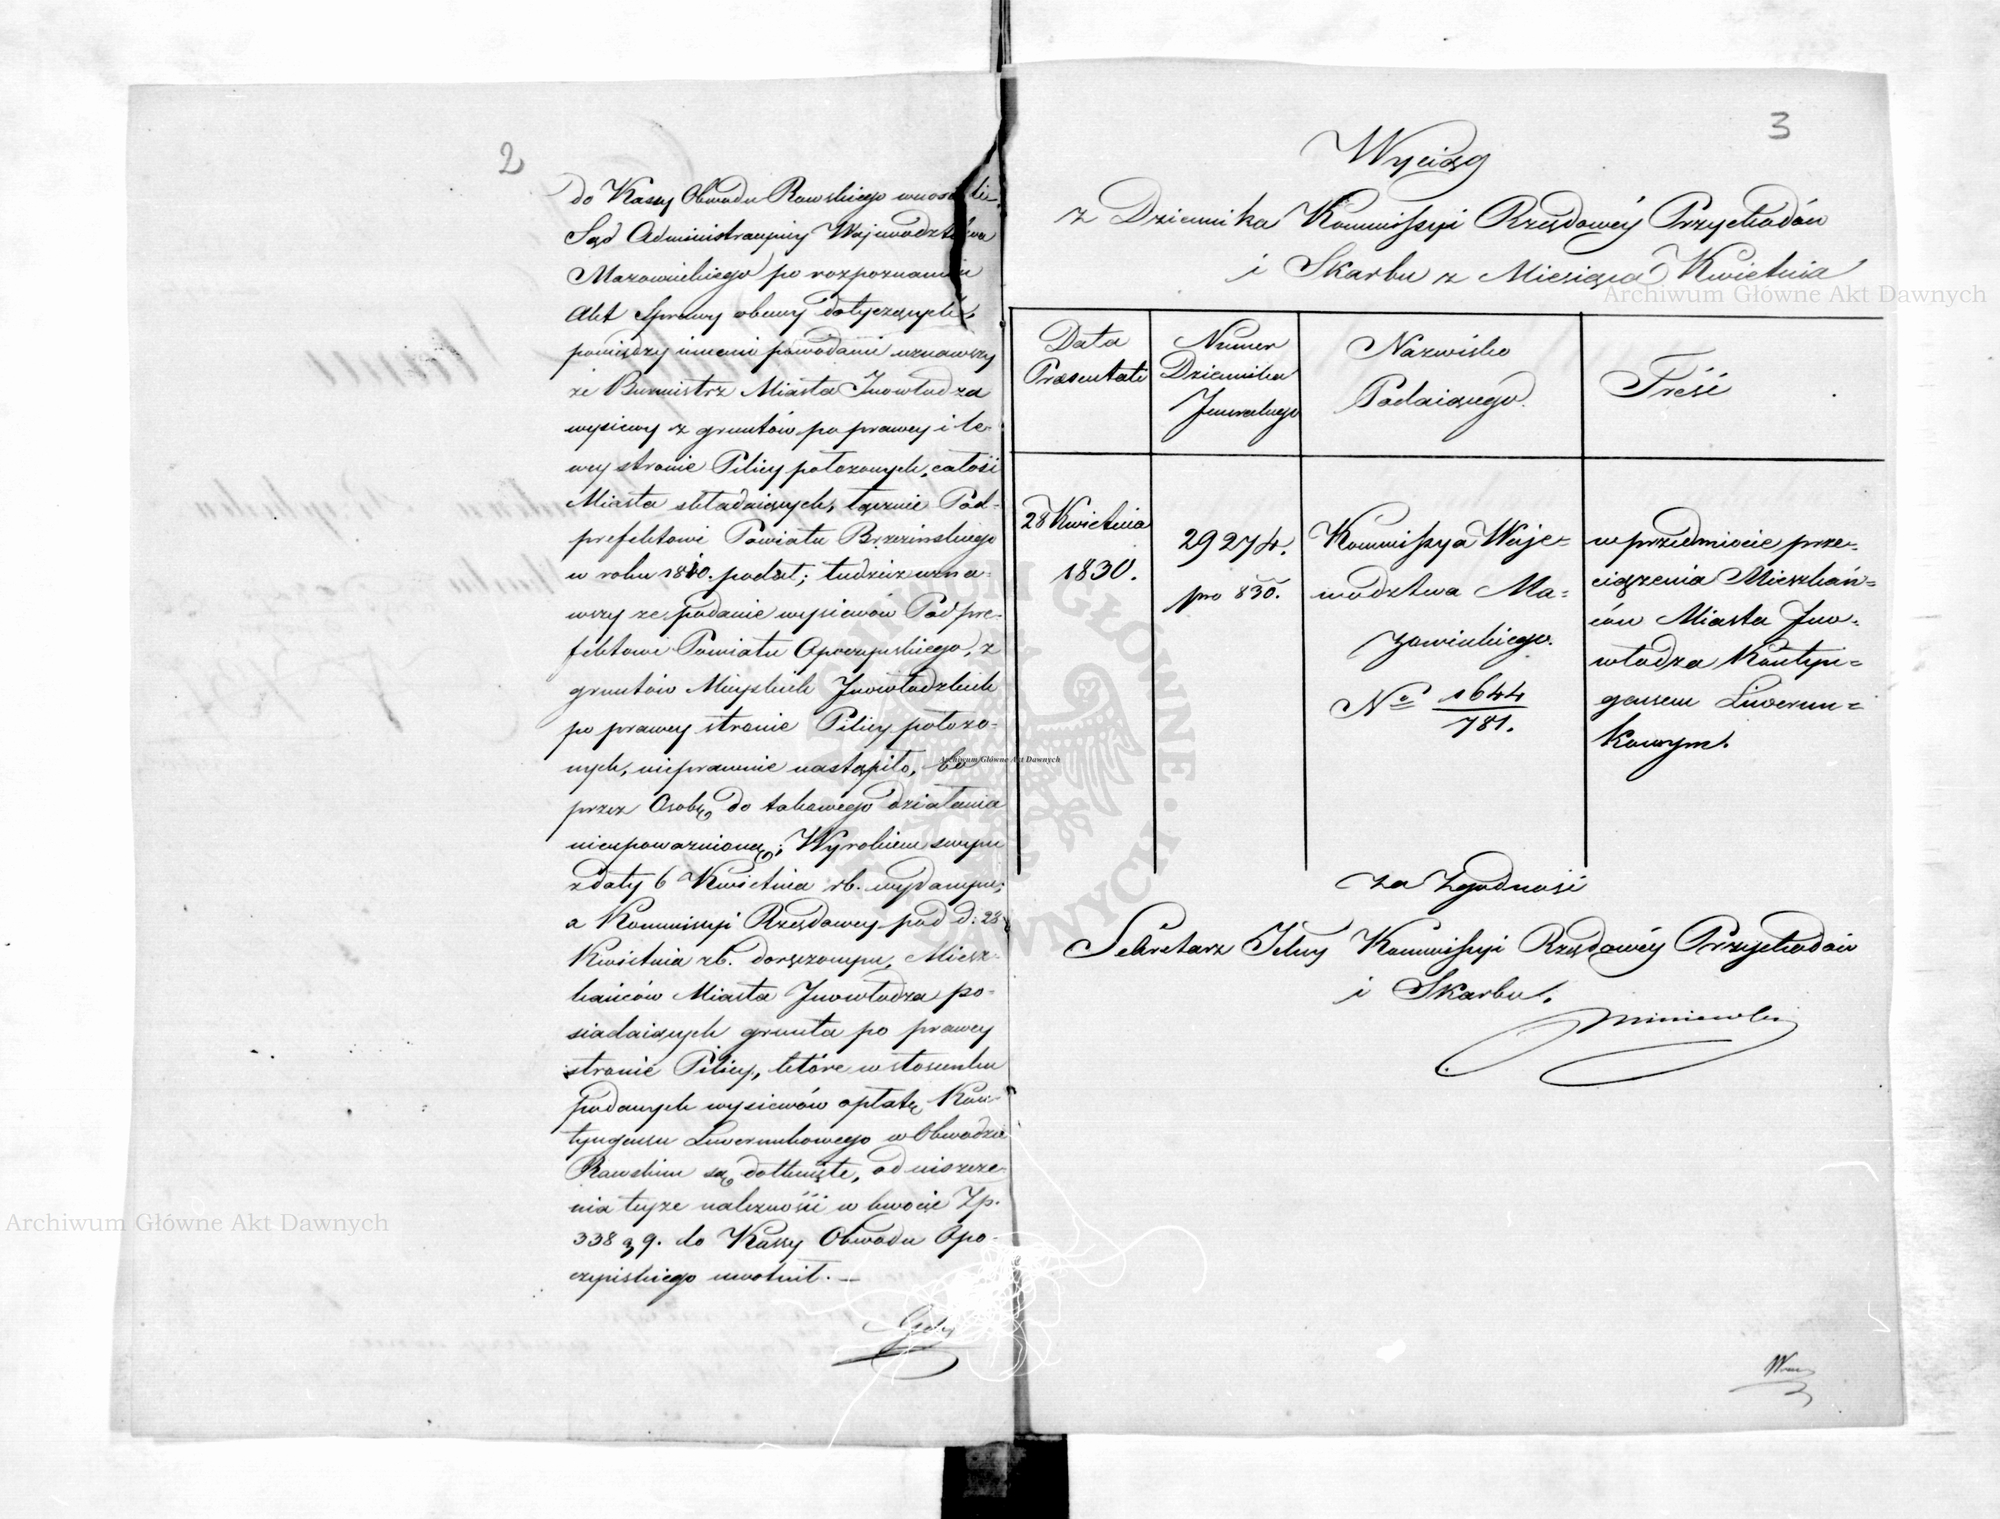 2
do Kassy Obwodu Rawskiego wnosili.
Sąd Administracyiny Województwa
Mazowieckiego po rozpoznaniu
Akt Sprawy obecny dotyczących,
pomiędzy innemi powodami uznawszy
że Burmistrz Miasta Inowłodza
wysiewy z gruntów po prawey i le-
wey stronie Pilicy położonych, całość
Miasta składaiących, łącznie Pod-
prefektowi Powiatu Brzezińskiego
w roku 1810. podał; tudzież uzna-
wszy że podanie wysiewów Podpre-
fektowi Powiatu Opoczyńskiego, z
gruntów Mieyskich Inowłodzkich
po prawey stronie Pilicy położo-
nych, nieprawnie nastąpiło, bo
przez Osobę do takowego działania
nieupoważnioną; Wyrokiem swym
z daty 6 Kwietnia rb. wydanym,
a Kommissyi Rządowey pod d: 28
Kwietnia rb. doręczonym, Miesz-
kańców Miasta Inowłodza po-
siadaiących grunta po prawey
stronie Pilicy, które w stosunku
podanych wysiewów opłatą Kon-
tyngensu Liwerunkowego w Obwodzie
Rawskim są dotknięte, od niszcze-
nia teyże należności w kwocie Zp.
338 g 9. do Kassy Obwodu Opo-
czyńskiego uwolnił. —
3
Wyciąg
z Dziennika Kommissyi Rządowéy Przychodów
i Skarbu z Miesiąca Kwietnia
Data
Praesentati
Numer
Dziennika
Jeneralnego
Nazwisko
Podaiącego.
Treść
28 Kwietnia
1830.
29274.
pro 830.
Kommissya Woje-
wództwa Ma-
zowieckiego.
No 1644
781.
w przedmiocie prze-
ciążenia Mieszkań-
ców Miasta Ino-
włodza Kontyn-
gensem Liwerun-
kowym.
Za Zgodność
Sekretarz Jelny Kommissyi Rządowéy Przychodów
i Skarbu.
Archiwum Główne Akt Dawnych
Archiwum Główne Akt Dawnych
Archiwum Główne Akt Dawnych